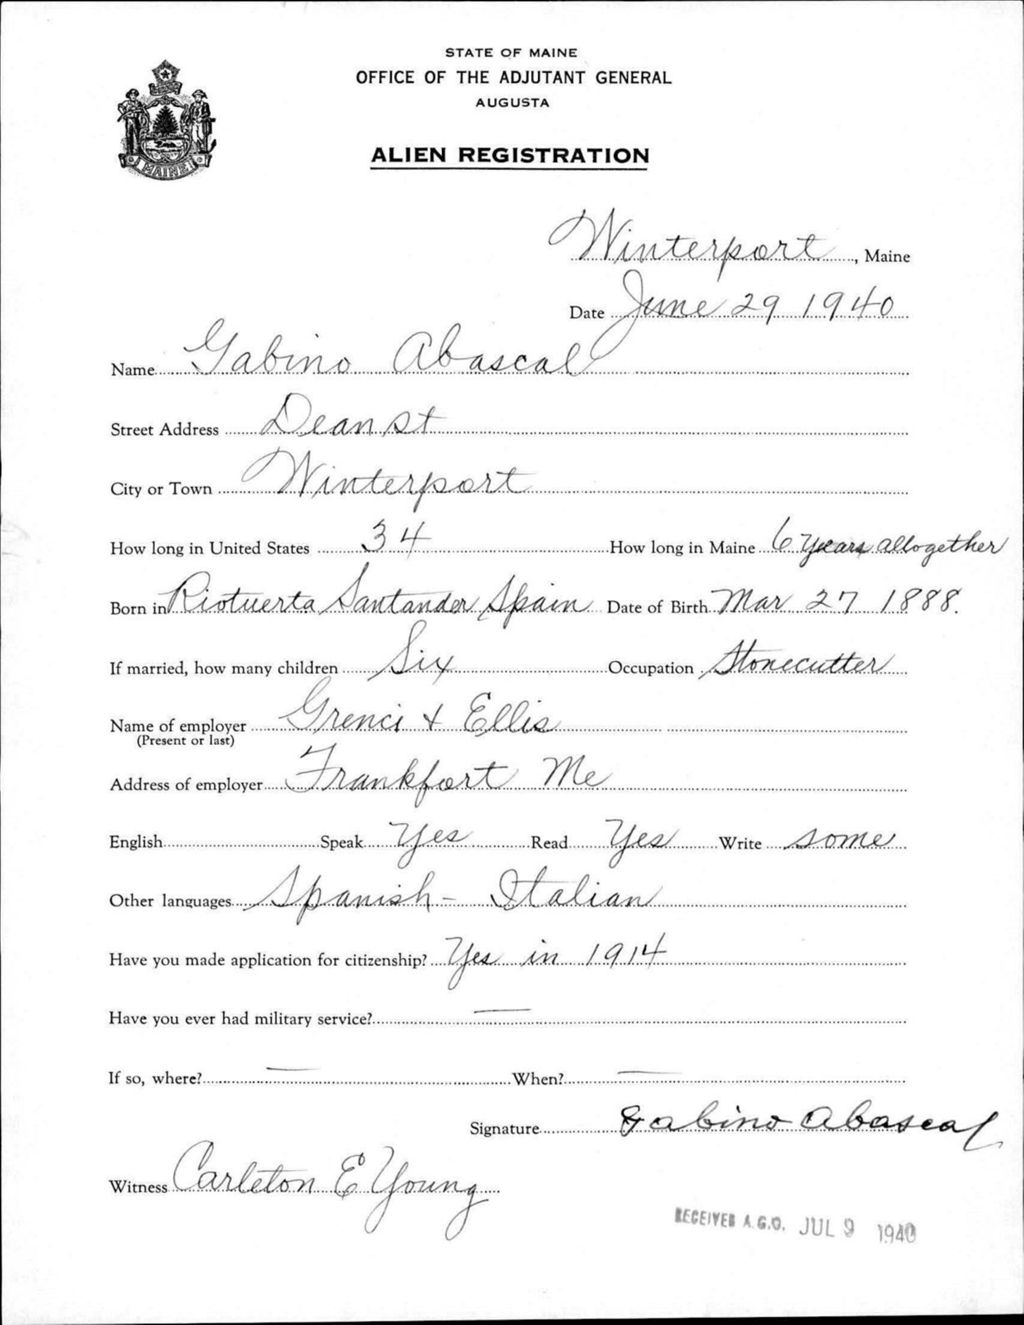 STATE OF MAINE
OFFICE OF THE ADJUTANT GENERAL
AUGUSTA
ALIEN REGISTRATION
MAINE
Winterport, Maine
Date June 29 1940
Name Gabino Abascal
Street Address Dean St
City or Town Winterport
How long in United States 34 How long in Maine 6 years alltogether
Born in Riotuerta Santander Spain Date of Birth Mar 27 1888.
If married, how many children Six Occupation Stonecutter
Name of employer Grenci + Ellis
(Present or last)
Address of employer Frankfort Me
English Speak Yes Read Yes Write some
Other languages Spanish - Italian
Have you made application for citizenship? Yes in 1914
Have you ever had military service? —
If so, where? — When? —
Signature Gabino Abascal
Witness Carleton E Young
RECEIVED A.G.O. JUL 9 1940